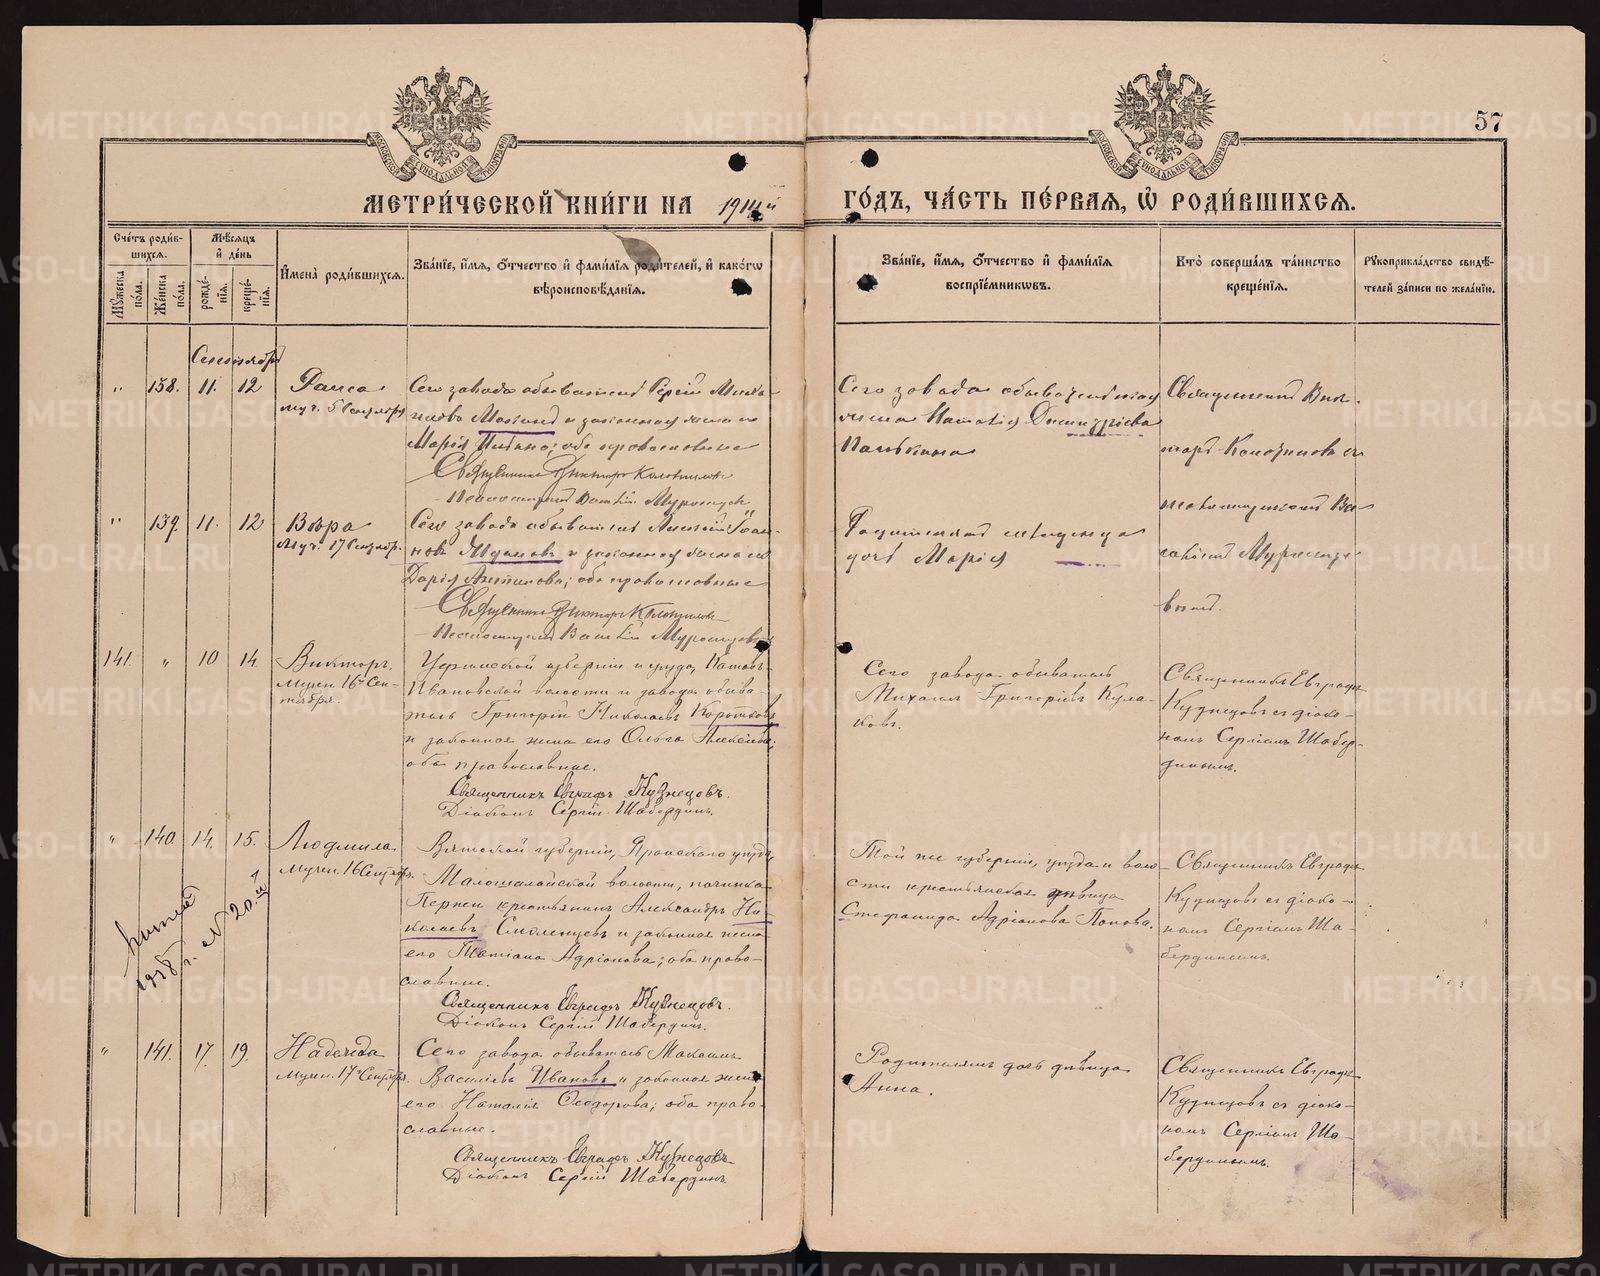 57
МОСКОВСКОЙ СѴНОДАЛЬНОЙ ТИПОГРАФІИ
МОСКОВСКОЙ СѴНОДАЛЬНОЙ ТИПОГРАФІИ
МЕТРИ́ЧЕСКОЙ КНИ́ГИ НА 1914й ГО́ДЪ, ЧА́СТЬ ПЕ́РВАЯ, Ѡ РОДИ́ВШИХСЯ.
Сче́тъ роди́в-
шихся.
Мꙋ́жеска по́ла.
Же́нска по́ла.
Мѣ́сяцъ и де́нь
рожде́-нія.
креще́-нія.
Имена̀ роди́вшихся.
Зва́ніе, и́мя, о́тчество и фами́лія роди́телей, и како́гѡ
вѣроисповѣ́данія.
Зва́ніе, и́мя, о́тчество и фами́лія
воспріе́мниковъ.
Кто̀ соверша́лъ та́инство
креще́нія.
Рꙋкоприкла́дство свидѣ́-
телей за́писи по жела́нію.
Сентябрь
" 138. 11. 12 Раиса
муч. 5 Сентября
Сего завода обыватель Сергій Михаи-
ловъ и законная жена его
Марія ; оба православные
Священникъ Викторъ
Псаломщикъ Василій
Сего завода обывательская
Наталія Димитріева
Священникъ Вик-
торъ съ
псаломщикомъ Ва-
силіемъ
" 139. 11. 12 Вѣра
Муч. 17 Сентябр.
Сего завода обыватель Алексій Іоан-
новъ и законная жена его
Дарія Антипова; оба православные
Священникъ Викторъ
Псаломщикъ Василій
Родителей
дочь Марія
141. " 10 14. Викторъ.
Мучен. 16го Сен-
тября.
Пермской губерніи и уѣзда, Катавъ-
Ивановской волости и завода обыва-
тель Григорій Николаевъ Коротковъ
и законная жена его Ольга Алексіева;
оба православные.
Священникъ Евграфъ Кузнецовъ.
Діаконъ Сергій Шабердинъ.
Сего завода обыватель
Михаилъ Григоріевъ Кула-
ковъ.
Священникъ Евграфъ
Кузнецовъ съ діако-
номъ Сергіемъ Шабер-
динымъ.
" 140. 14. 15. Людмила
Мучен. 16 Сентябр.
Вятской губерніи, Яранского уѣзда,
Малошалайской волости, починка
крестьянинъ Александръ Ни-
колаевъ Смоленцевъ и законная жена
его Татіана Адріанова; оба право-
славные.
Священникъ Евграфъ Кузнецовъ.
Діаконъ Сергій Шабердинъ.
Той же губерніи, уѣзда и воло-
сти крестьянская дѣвица
Стефанида Адріанова Попова.
Священникъ Евграфъ
Кузнецовъ съ діако-
номъ Сергіемъ Ша-
бердинымъ.
1918 г. № 20.й
" 141. 17. 19. Надежда
Мучен. 17го Сентября.
Сего завода обыватель Максимъ
Василіевъ Ивановъ и законная жена
его Наталія Ѳеодорова; оба право-
славные.
Священникъ Евграфъ Кузнецовъ.
Діаконъ Сергій Шабердинъ.
Родителямъ дочь дѣвица
Анна.
Священникъ Евграфъ
Кузнецовъ съ діако-
номъ Сергіемъ Ша-
бердинымъ.
METRIKI.GASO-URAL.RU